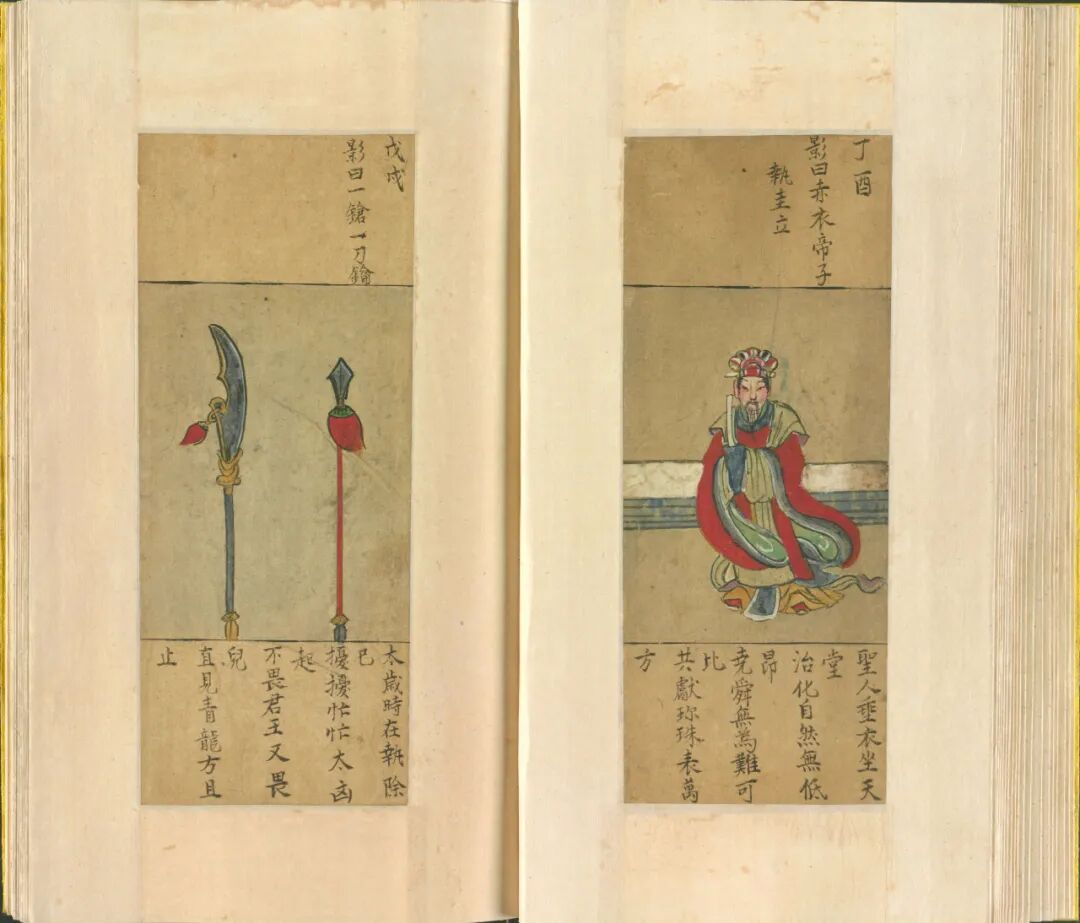 丁酉
影曰赤衣帝子
執圭立
聖人垂衣坐天
堂
治化自然無低
昂
堯舜無為難可
比
共獻珎珠表萬
方
戊戌
影曰一鎗一刀
太歲時在執除
巳
擾擾忙忙太凶
起
不畏君王又畏
兒
直見青龍方且
止